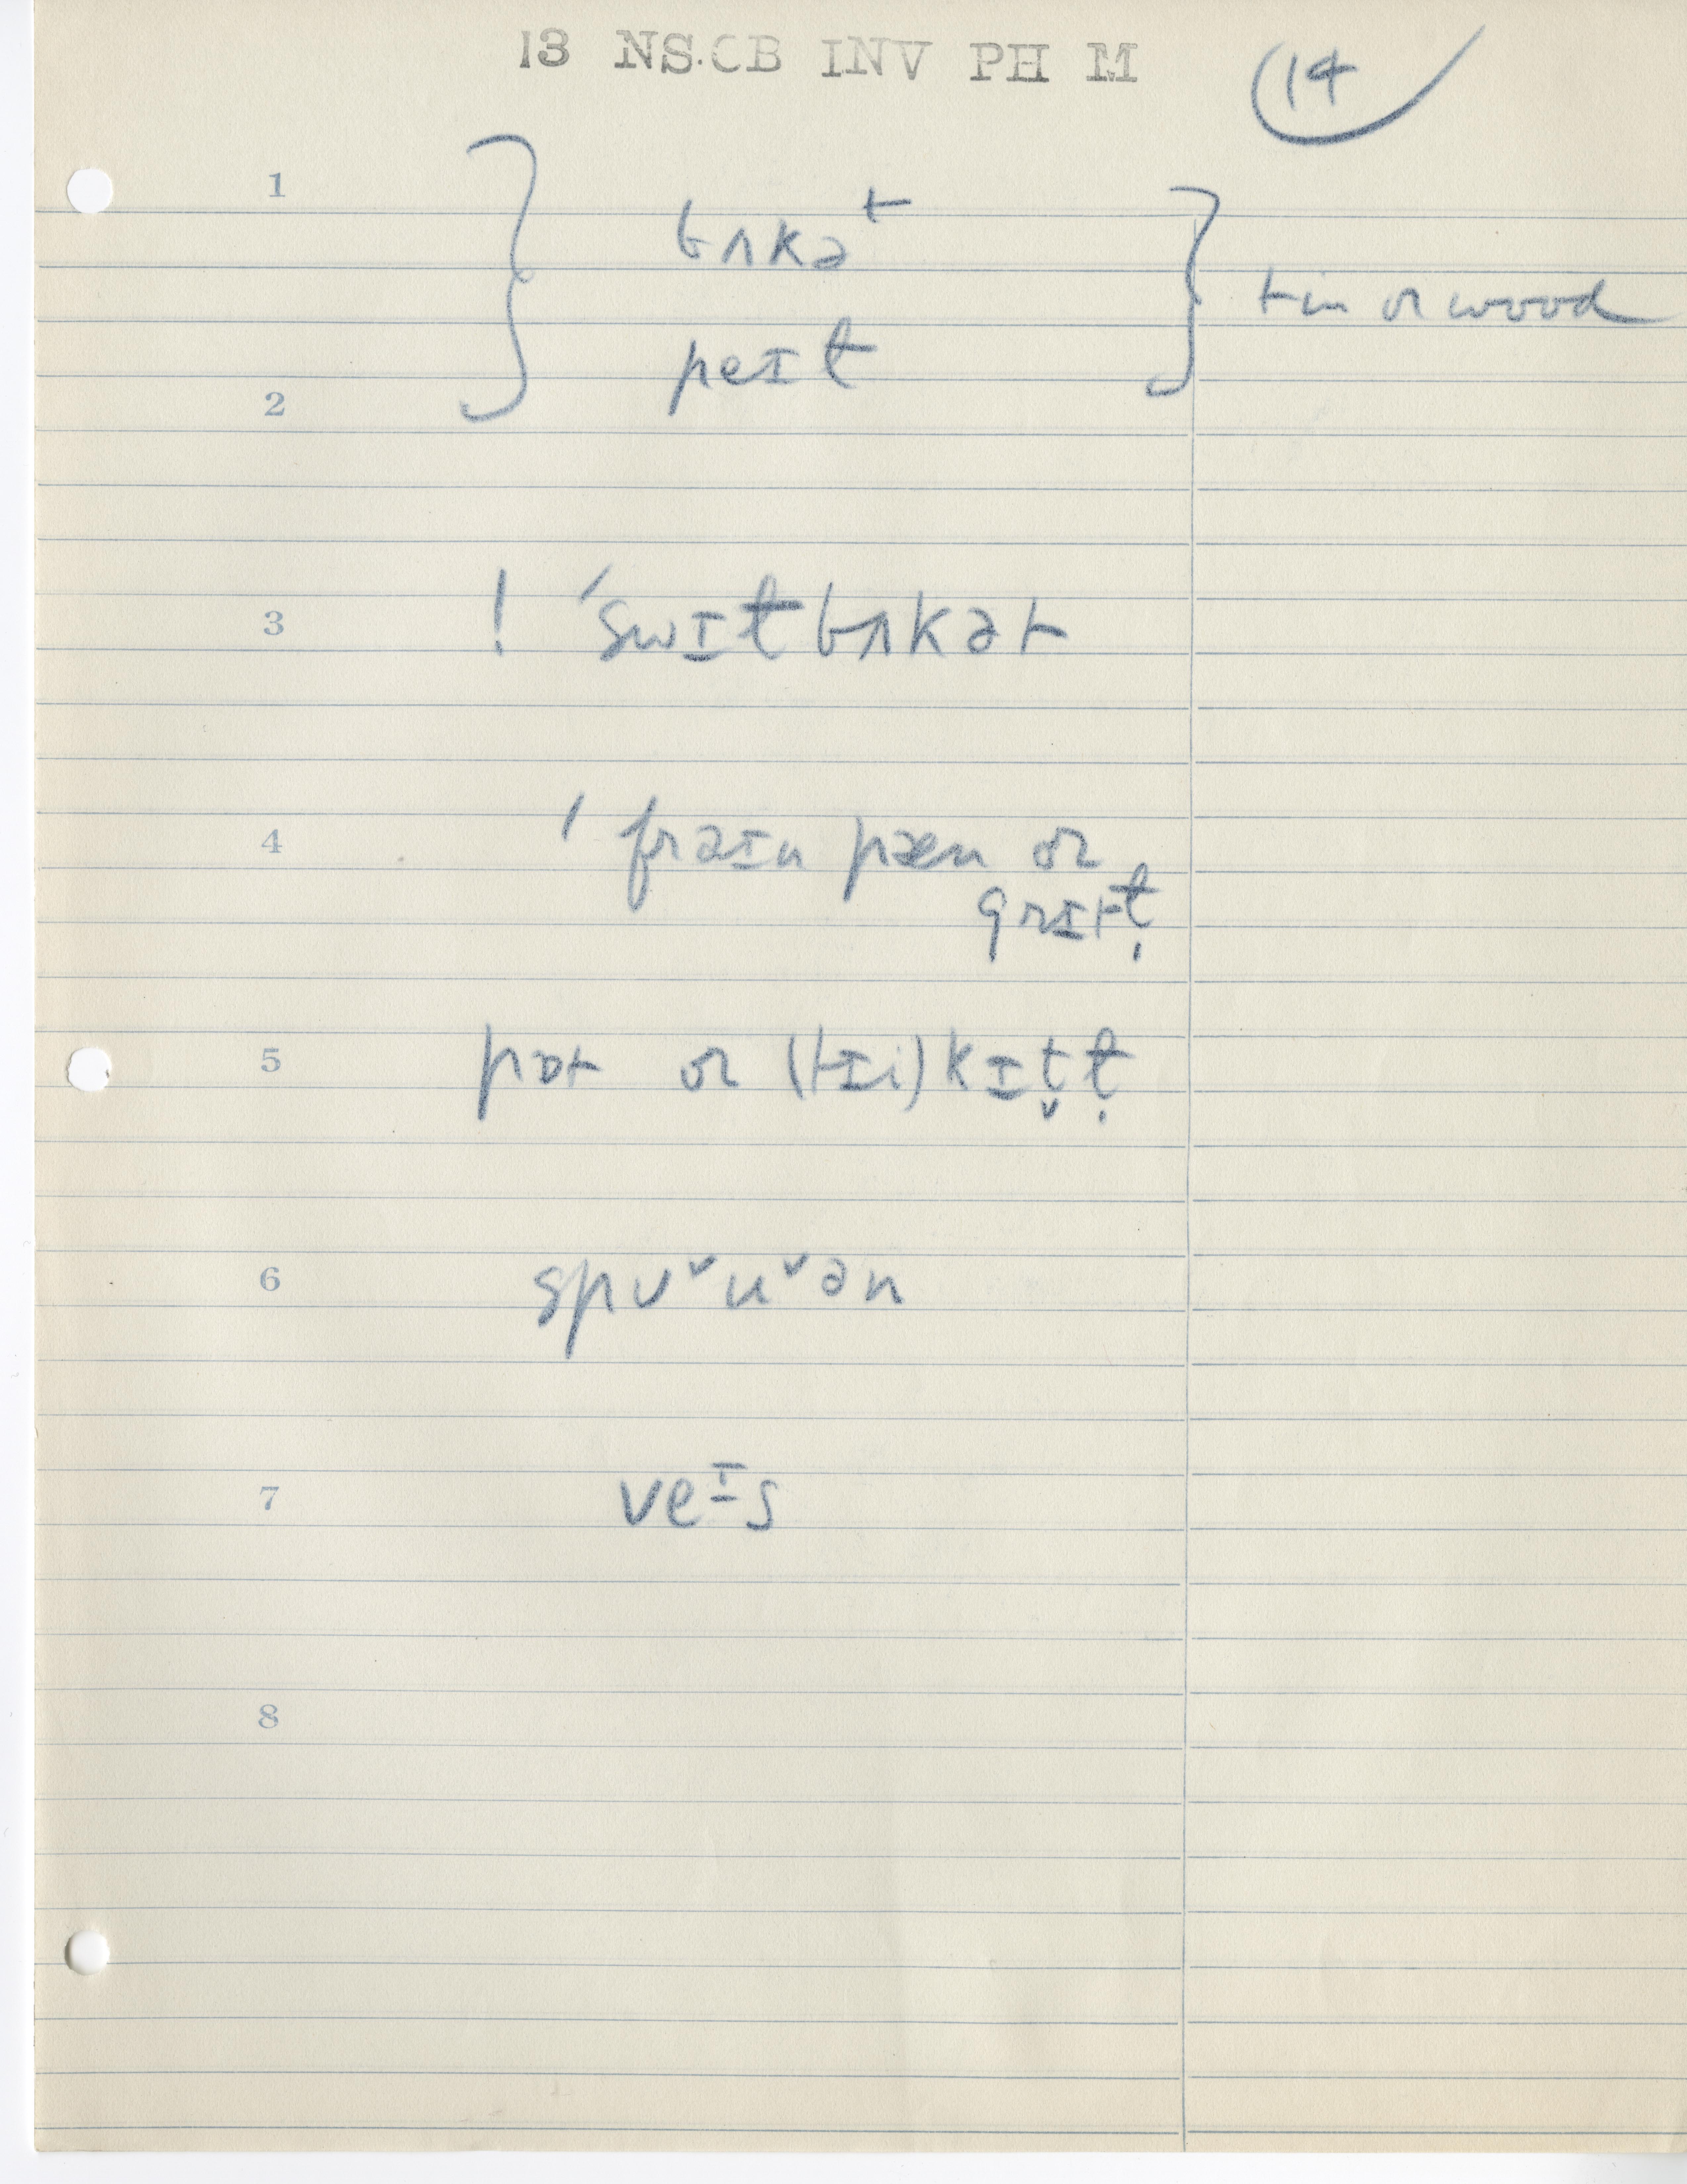 13 NS.CB INV PH M
14
1
bʌkət
tin or wood
peɪɫ
2
3 ! ˈswɪɫbʌkət
4 ˈfrəɪn pæn or
grɪtɫ̩
5 pɒt or (tɪi)kɪt̬ɫ̩
6 spᴜˇuˇən
7 veɪs
8